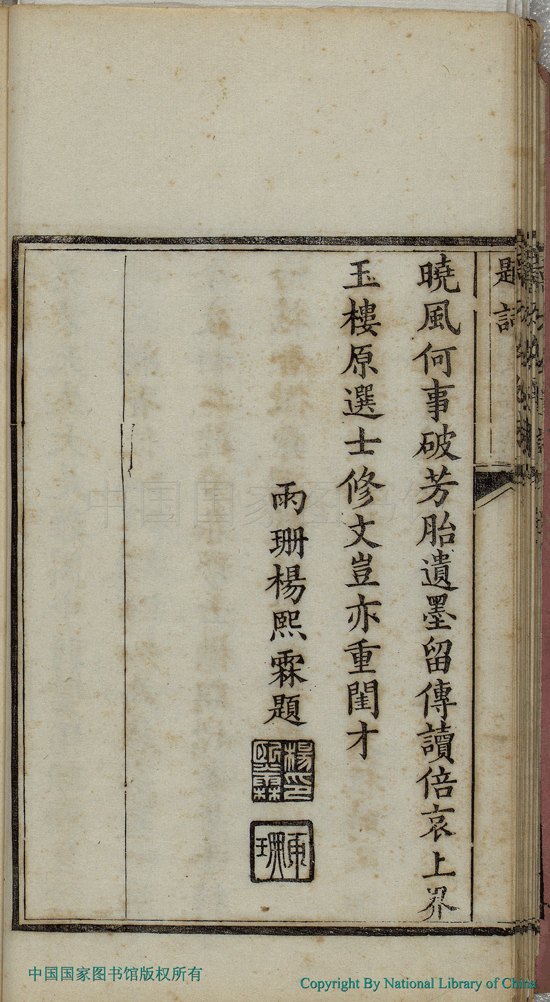 題詩
曉風何事破芳胎遺墨留傳讀倍哀上界
玉樓原選士修文豈亦重閨才
雨珊楊熙霖題
楊印
熙霖
雨珊
中国国家图书馆版权所有
Copyright By National Library of China